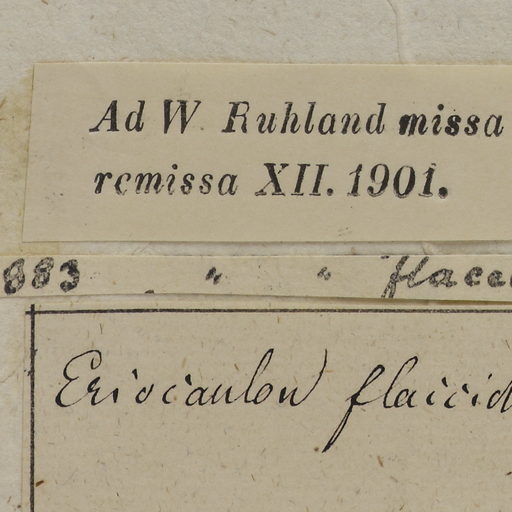 Ad W. Ruhland missa
remissa XII. 1901.
883 " " flacc
Eriocaulon flaccid